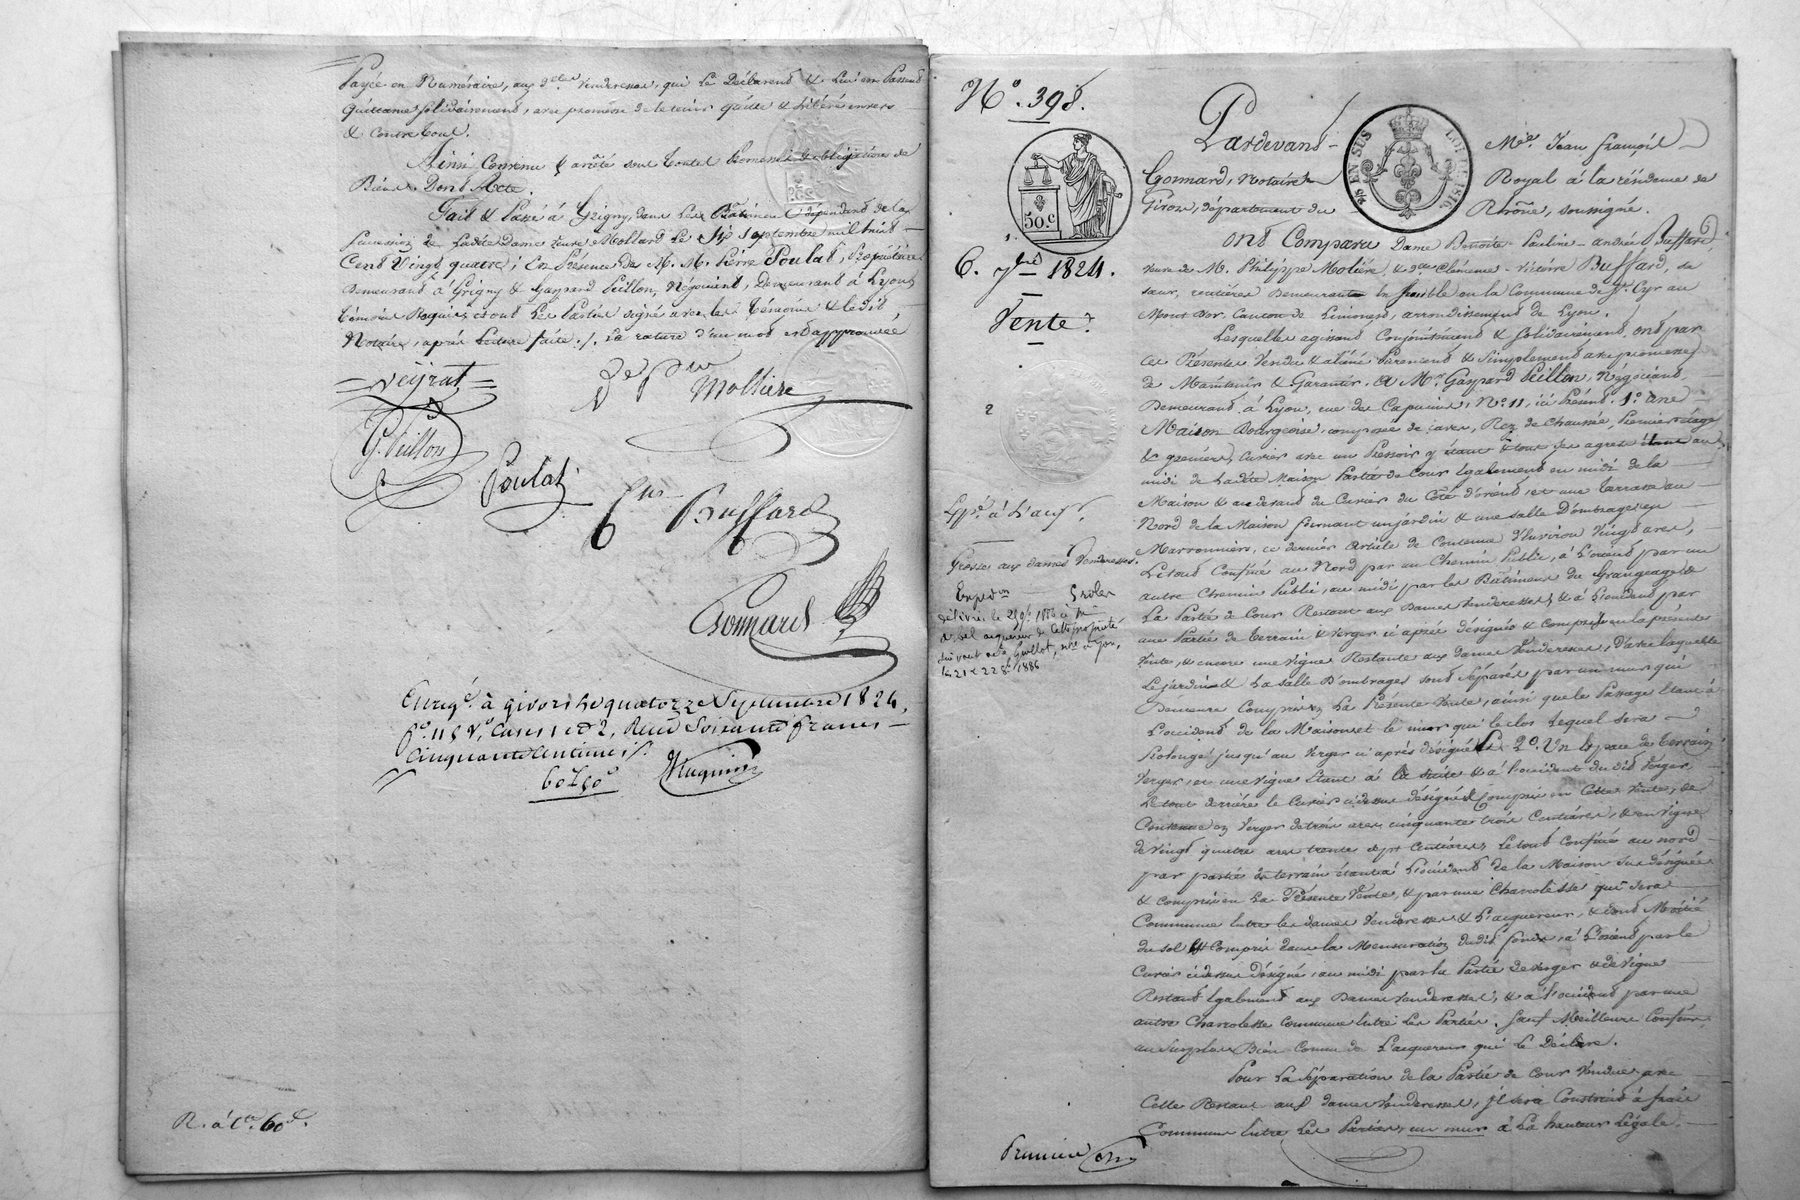 Payée en Numéraire, aux dtes Venderesses, qui le Déclarent & lui en Passent
Quittance solidairement, avec promesse de le tenir quitte & Libéré envers
& contre tout.
Ainsi Convenu & arrêté sous toutes Promesses & obligations de
Biens Dont Acte.
Fait & Passé à Grigny, dans les Bâtimens dépendant de la
succession de Ladite Dame veuve Mollard Le Six septembre mil huit
Cent Vingt quatre; En Présence de M. M. Pierre Poulat, Propriétaire
Demeurant à Grigny & Gaspard Peillon, Négociant, Demeurant à Lyon
témoins Requis; et ont Les Parties signé avec les témoins & ledit
Notaire, après Lecture faite ./. La rature d'un mot est approuvée
Veyrat
Molliere
G. Peillon
Poulat
Buffard
Gonnard
Enregé. à givors le quatorze Septembre 1824,
fo. 118 Vo, Cases 1 et 2, Reçu Soixante francs
Cinquante Centimes ./.
60f 50c
Huguin
R. à Ct. 60 c.
No. 398.
50. c
6. 7bre 1824.
Vente
2
Expé. à L'acqr.
Grosse aux dames Venderesses.
Expedon 5 roles
délivrée le 29 1886 à Mr
acquereur de cette propriété
suivant acte Guillot, nre à Lyon,
les 21 et 22 1886
Pardevant Me. Jean françois
Gonnard, Notaire Royal à la résidence de
Givors, département du Rhône, soussigné.
EN SUS
LOI DE 1816.
Ont Comparu Dame Benoite - Pauline - andrée Buffard
veuve de M. Philippe Molière, & dlle Clémence - Victoire Buffard, sa
sœur, rentières Demeurantes ensemble en la Commune de St. Cyr au
Mont d'or, Canton de Limonest, arrondissement de Lyon.
Lesquelles agissant Conjointement & solidairement ont par
ces Présentes Vendu & aliéné Purement & simplement avec promesse
de Maintenir & Garantir, à Mr. Gaspard Peillon, Négociant
Demeurant à Lyon, rue des Capucins, No. 11, ici Présent. 1o. Une
Maison Bourgeoise, composée de caves, Rez de Chaussée, Premier étage
& greniers, Cuvier avec un Pressoir y étant & tous ses agrès au
midi de Ladite Maison Partie de Cour également en midi de la
Maison & au devant du Cuvier du Côté d'orient, et une terrasse au
Nord de la Maison formant un jardin & une salle D'ombrages en
Marronniers, ce dernier article de Contenue d'Environ Vingt ares,
Le tout Confiné au Nord par un Chemin Public, à L'orient par un
autre Chemin Public, au midi par les Bâtimens du Grangeage &
La Partie de Cour Restant aux Dames Venderesses, & à L'occident par
une Partie de terrain & verger ci après désignés & Compris en la présente
Vente, & encore une Vigne Restante aux dames Venderesses, D'avec laquelle
Le jardin & La salle D'ombrages sont séparés par un mur qui
Demeure Compris en La Présente Vente, ainsi que le Passage étant à
L'occident de la Maison, et le mur qui le clos Lequel sera
Prolongé jusqu'au Verger ci après désigné. 2o. Un Espace de terrain
Verger, et une Vigne étant à la suite & à l'occident dudit Verger,
Le tout derrière le Cuvier ci dessus désigné & Compris en Cette Vente, de
Contenue en Verger de trois ares cinquante trois Centiares, & en Vigne
de Vingt quatre ares trente sept Centiares, Le tout Confiné au nord
par partie de terrain étant à L'occident de la Maison sus désignée
& comprise en La Présente Vente, & par une Charolesse qui sera
Commune Entre les dames Venderesses & L'acquereur, & dont Moitié
du sol est Compris dans la Mensuration dudit fonds, à L'orient par le
Cuvier ci dessus désigné, au midi par la Partie de verger & de Vigne
Restant également aux Dames Venderesses, & à l'occident par une
autre Charolesse commune Entre Les Parties. sauf Meilleurs Confins,
au surplus Bien Connu de L'acquereur qui le Déclare.
Pour La séparation de la Partie de Cour Vendue avec
Celle Restant aux dames Venderesses, il sera Construit à frais
Communs Entre Les Parties, un mur à La hauteur Légale.
Première